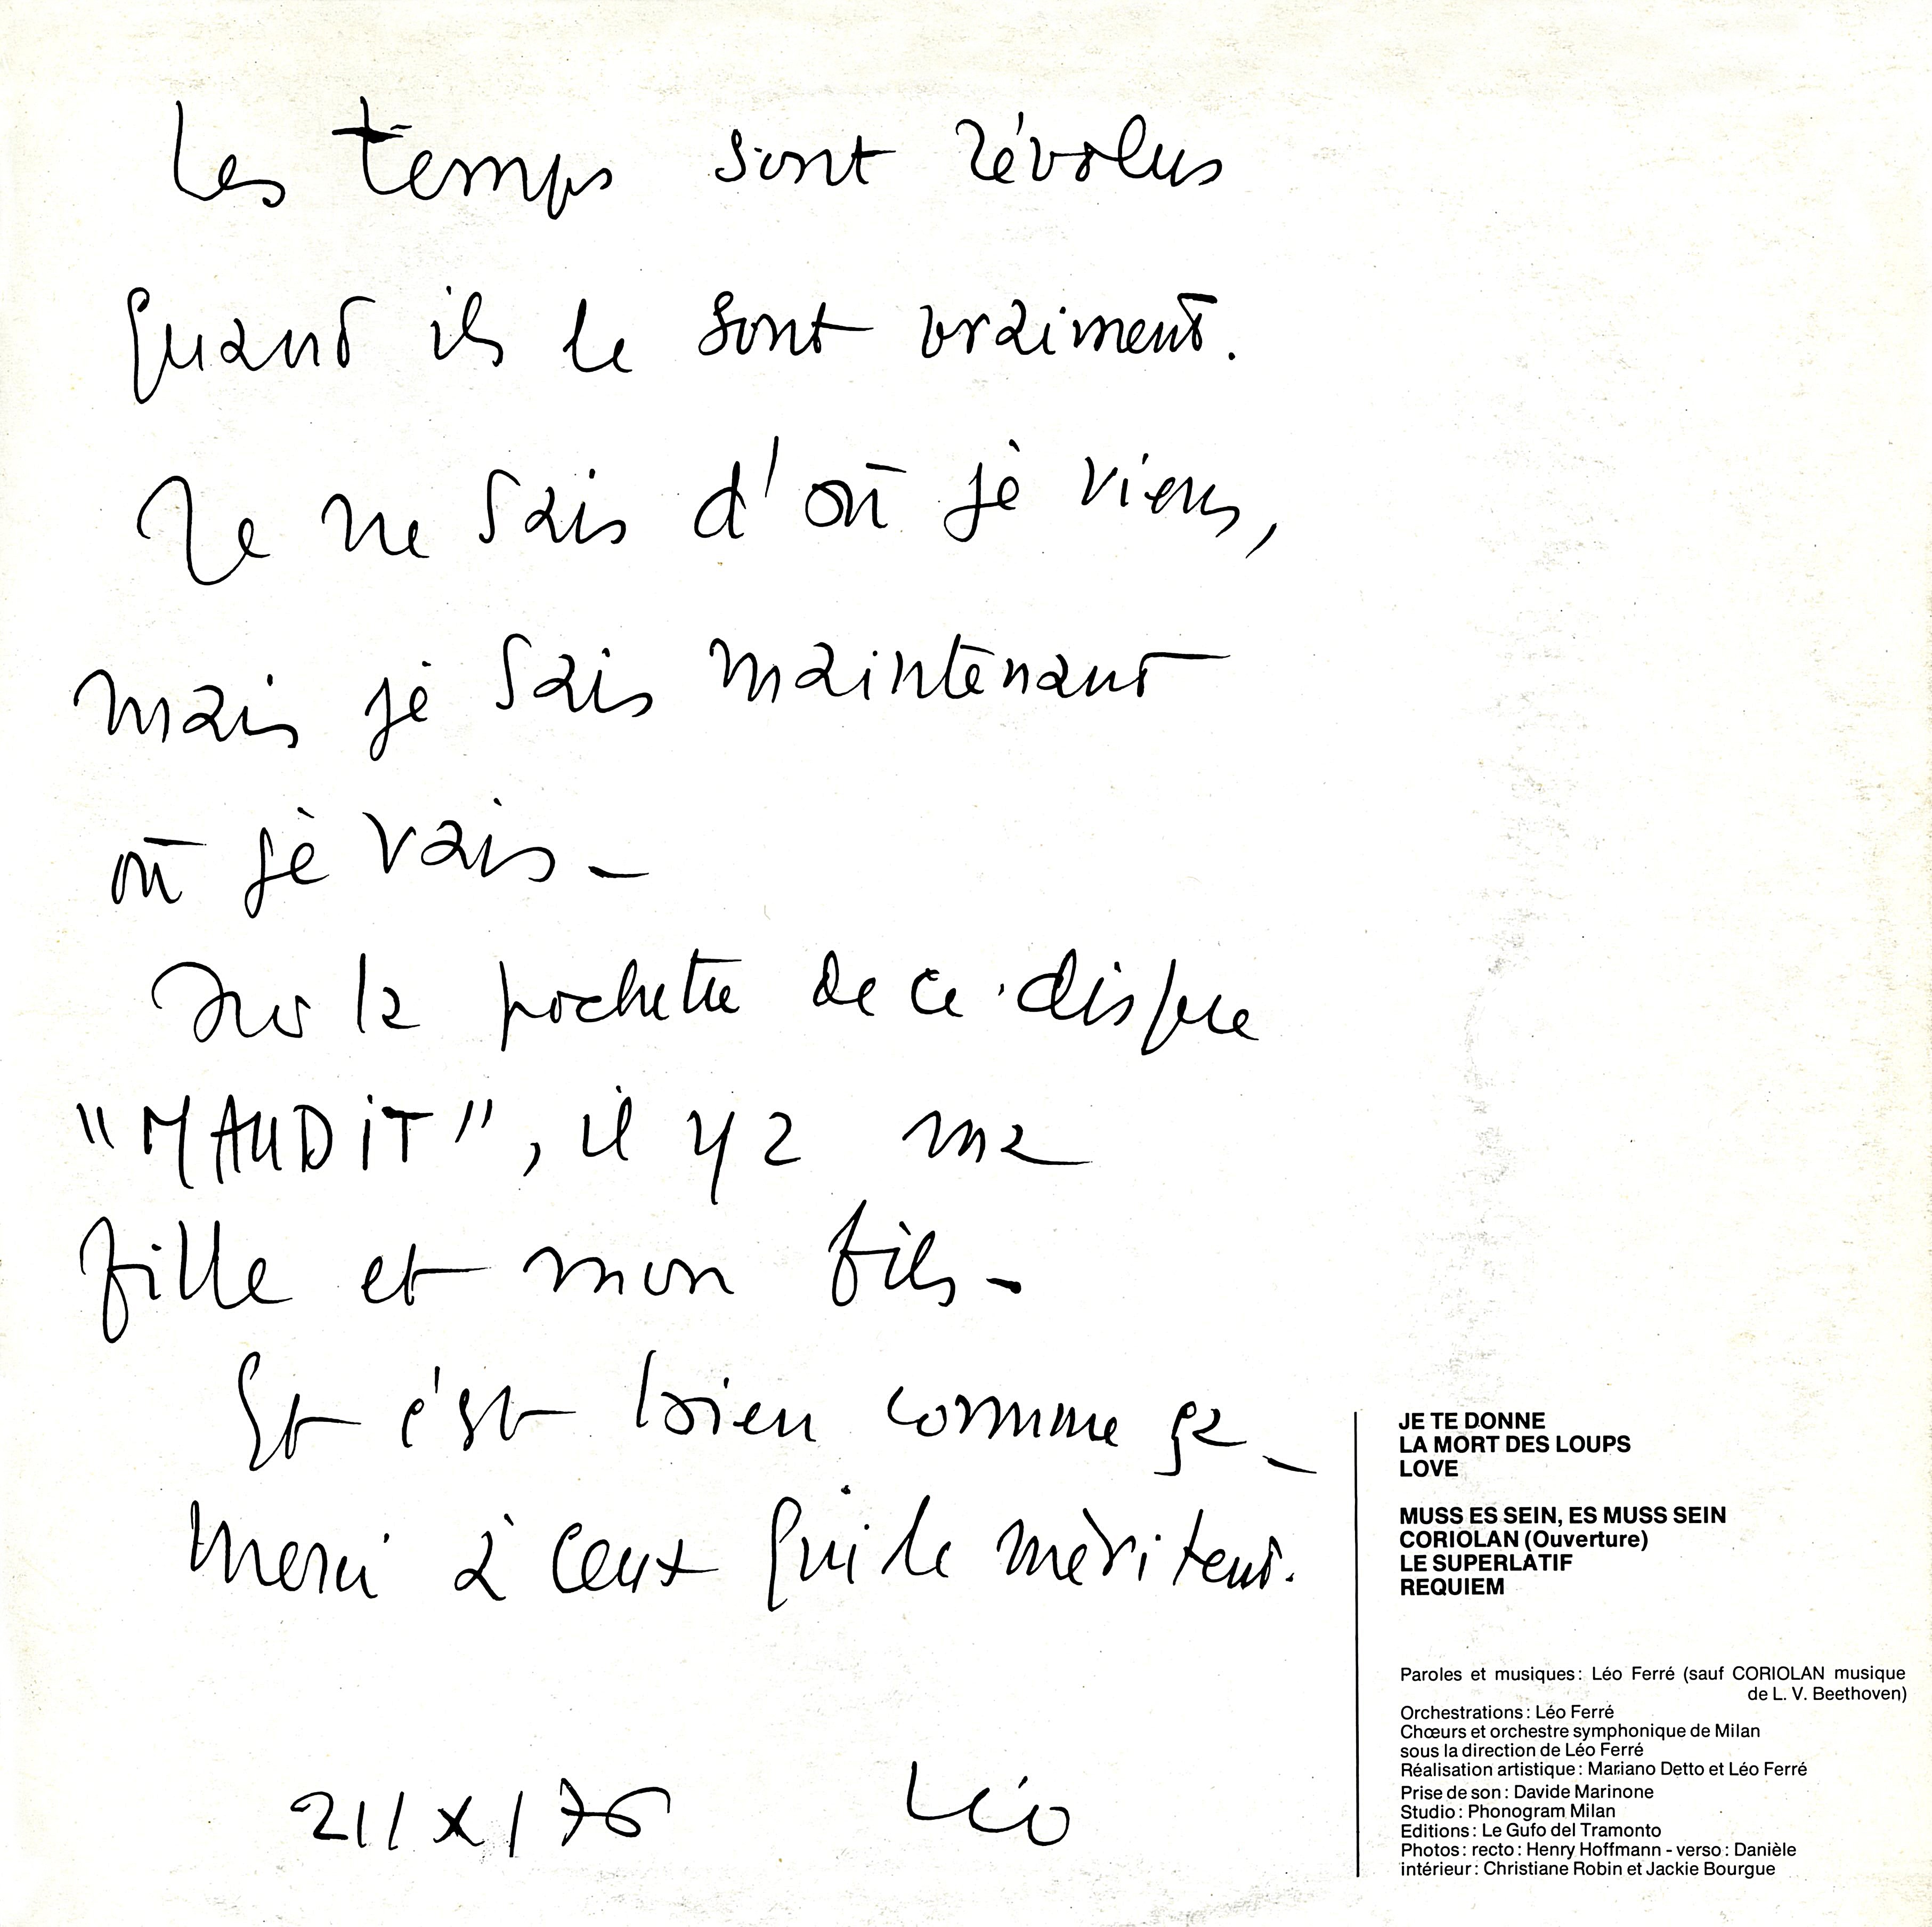 Les temps sont révolus
quand ils le sont vraiment.
Je ne sais d'où je viens,
mais je sais maintenant
où je vais -
Sur la pochette de ce disque
"MAUDIT", il y a ma
fille et mon fils -
Et c'est bien comme ça -
Merci à ceux qui le méritent.
21/X/76 Léo
JE TE DONNE
LA MORT DES LOUPS
LOVE
MUSS ES SEIN, ES MUSS SEIN
CORIOLAN (Ouverture)
LE SUPERLATIF
REQUIEM
Paroles et musiques : Léo Ferré (sauf CORIOLAN musique
de L. V. Beethoven)
Orchestrations : Léo Ferré
Chœurs et orchestre symphonique de Milan
sous la direction de Léo Ferré
Réalisation artistique : Mariano Detto et Léo Ferré
Prise de son : Davide Marinone
Studio : Phonogram Milan
Editions : Le Gufo del Tramonto
Photos : recto : Henry Hoffmann - verso : Danièle
intérieur : Christiane Robin et Jackie Bourgue